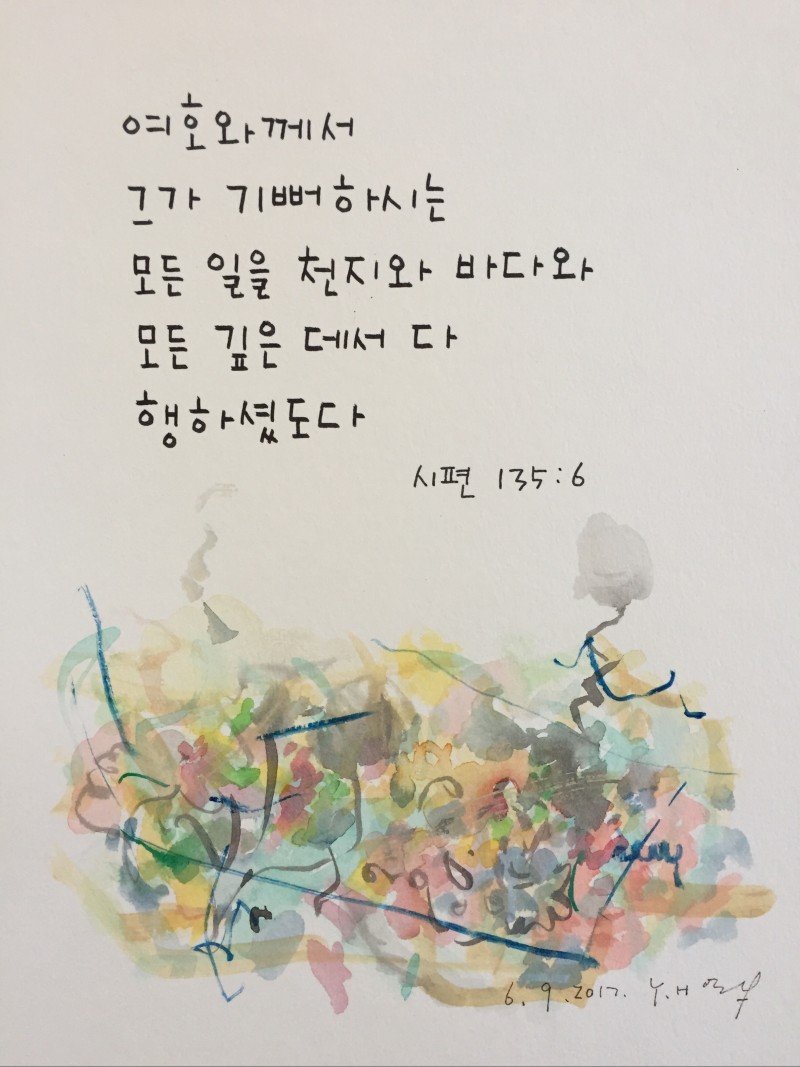 여호와께서
그가 기뻐하시는
모든 일을 천지와 바다와
모든 깊은 데서 다
행하셨도다
시편 135:6
6. 9. 2017. Y.H